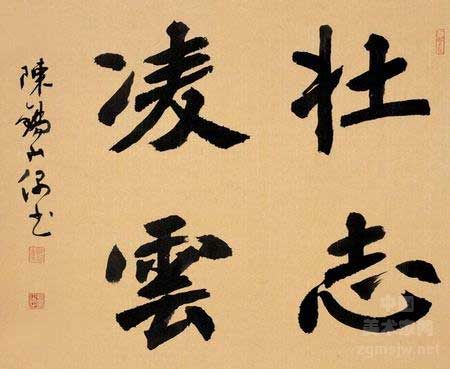 壮志
凌雲
陳錫山書
中国
美术家网
zgmsjw.net